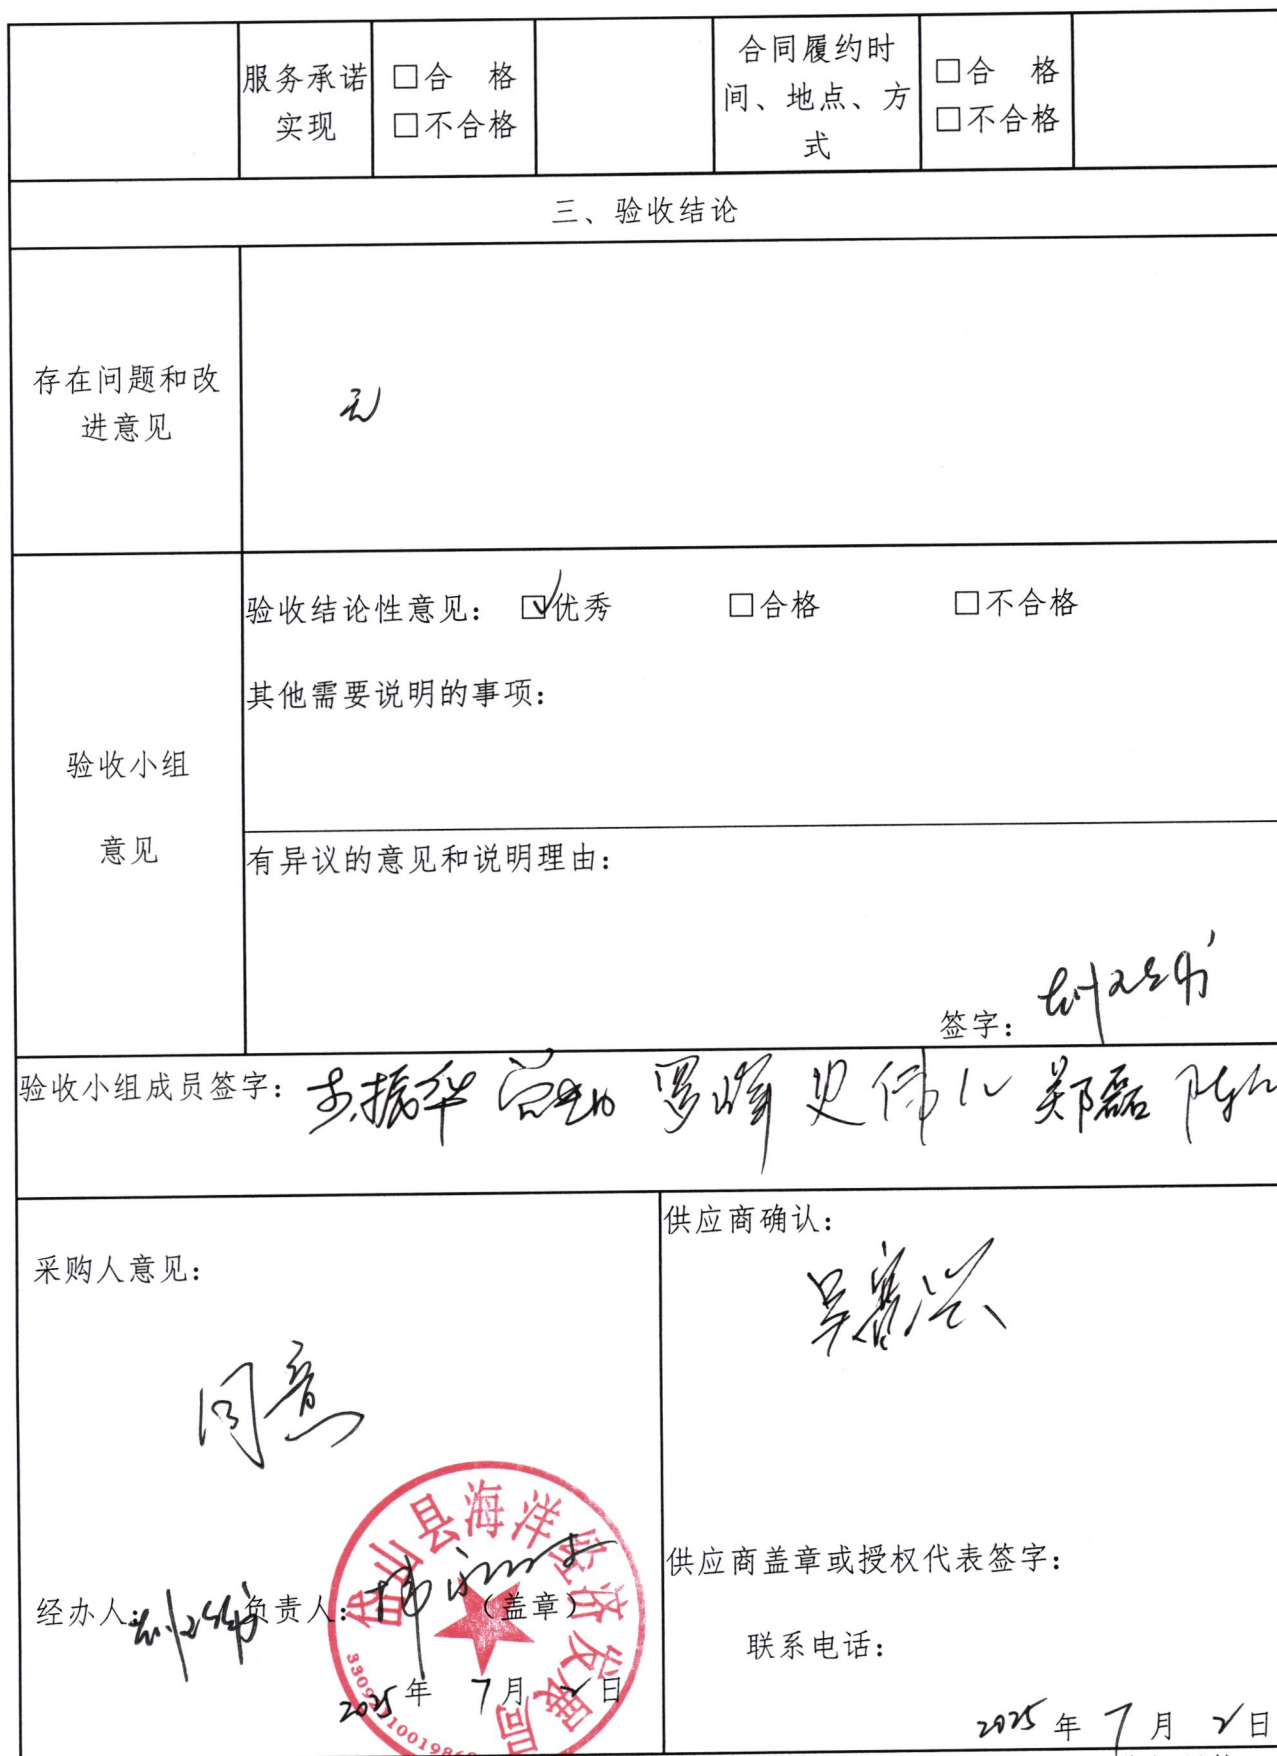 服务承诺
实现
□合 格
□不合格
合同履约时
间、地点、方
式
□合 格
□不合格
三、验收结论
存在问题和改
进意见
无
验收小组
意见
验收结论性意见： ☑优秀 □合格 □不合格
其他需要说明的事项：
有异议的意见和说明理由：
签字：
验收小组成员签字： 罗峰 史伟 郑磊
采购人意见：
同意
经办人： 负责人： （盖章）
岱山县海洋经济发展局
2025年 7月 2日
供应商确认：
供应商盖章或授权代表签字：
联系电话：
2025 年 7 月 2日